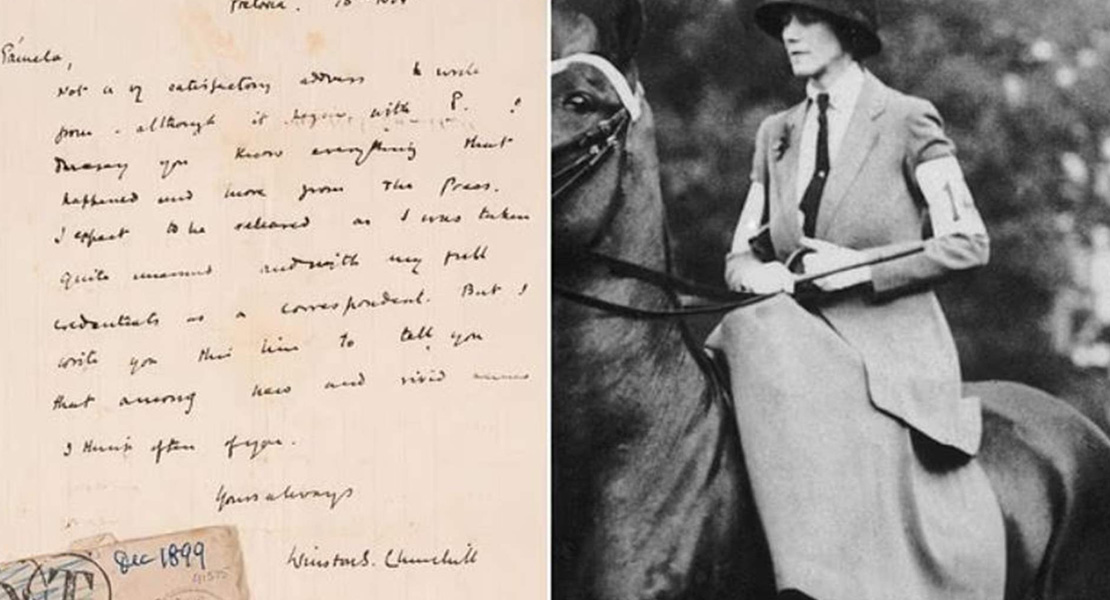 Pretoria. 18 1899
Pamela,
Not a vy satisfactory address to write
from - although it begins with P.
you know everything that
happened and more from the Press.
I expect to be released as I was taken
quite unarmed and with my full
credentials as a correspondent. But I
write you this line to tell you
that among new and vivid
I think often of you.
Yours always
Winston S. Churchill
Dec 1899
1